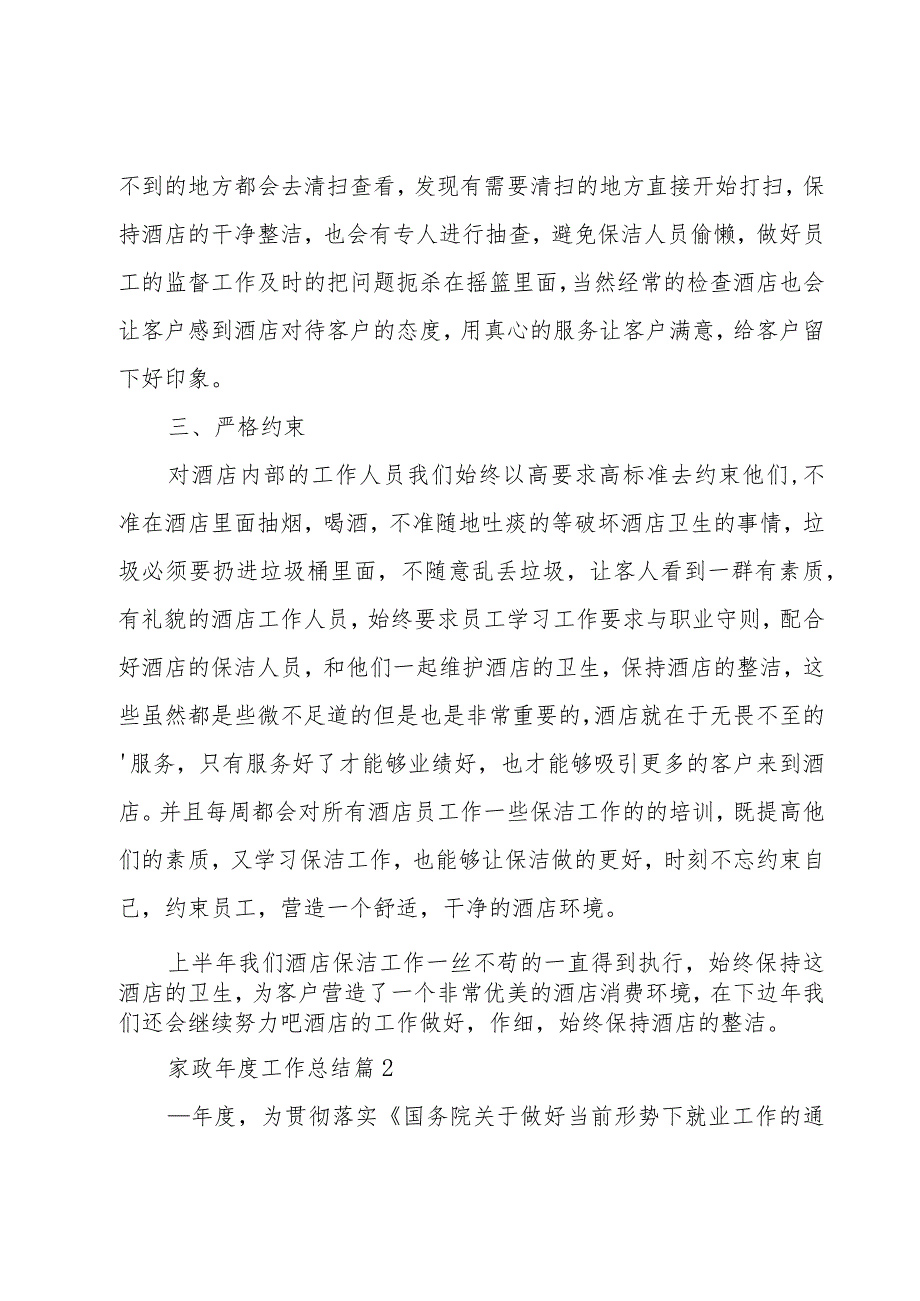 不到的地方都会去清扫查看，发现有需要清扫的地方直接开始打扫，保
持酒店的干净整洁，也会有专人进行抽查，避免保洁人员偷懒，做好员
工的监督工作及时的把问题扼杀在摇篮里面，当然经常的检查酒店也会
让客户感到酒店对待客户的态度，用真心的服务让客户满意，给客户留
下好印象。
三、严格约束
对酒店内部的工作人员我们始终以高要求高标准去约束他们,不
准在酒店里面抽烟，喝酒，不准随地吐痰的等破坏酒店卫生的事情，垃
圾必须要扔进垃圾桶里面，不随意乱丢垃圾，让客人看到一群有素质，
有礼貌的酒店工作人员，始终要求员工学习工作要求与职业守则，配合
好酒店的保洁人员，和他们一起维护酒店的卫生，保持酒店的整洁，这
些虽然都是些微不足道的但是也是非常重要的，酒店就在于无畏不至的
'服务，只有服务好了才能够业绩好，也才能够吸引更多的客户来到酒
店。并且每周都会对所有酒店员工作一些保洁工作的的培训，既提高他
们的素质，又学习保洁工作，也能够让保洁做的更好，时刻不忘约束自
己，约束员工，营造一个舒适，干净的酒店环境。
上半年我们酒店保洁工作一丝不苟的一直得到执行，始终保持这
酒店的卫生，为客户营造了一个非常优美的酒店消费环境，在下边年我
们还会继续努力吧酒店的工作做好，作细，始终保持酒店的整洁。
家政年度工作总结篇2
—年度，为贯彻落实《国务院关于做好当前形势下就业工作的通